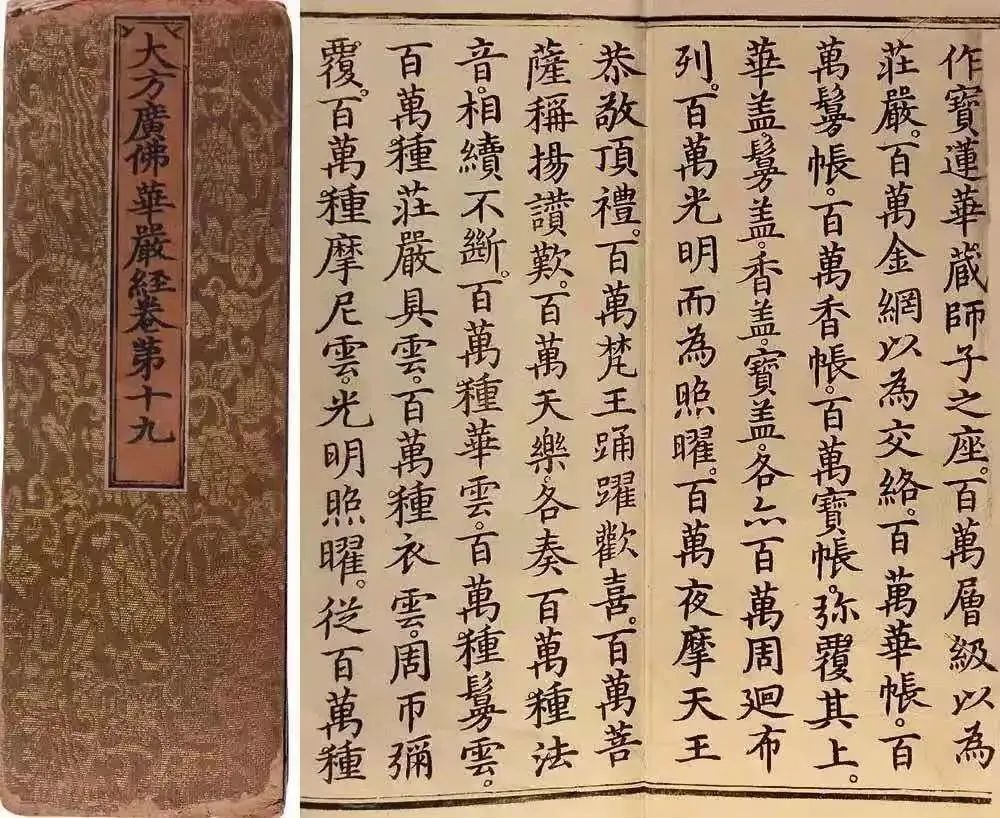 大方廣佛華嚴経卷第十九
作寶蓮華蔵師子之座。百萬層級以為
莊嚴。百萬金網以為交絡。百萬華帳。百
萬鬘帳。百萬香帳。百萬寶帳。弥覆其上。
華盖。鬘盖。香盖。寶盖。各亦百萬周廻布
列。百萬光明而為照曜。百萬夜摩天王
恭敬頂禮。百萬梵王踊躍歡喜。百萬菩
薩稱揚讃歎。百萬天樂。各奏百萬種法
音。相續不斷。百萬種華雲。百萬種鬘雲。
百萬種莊嚴具雲。百萬種衣雲。周帀彌
覆。百萬種摩尼雲。光明照曜。從百萬種